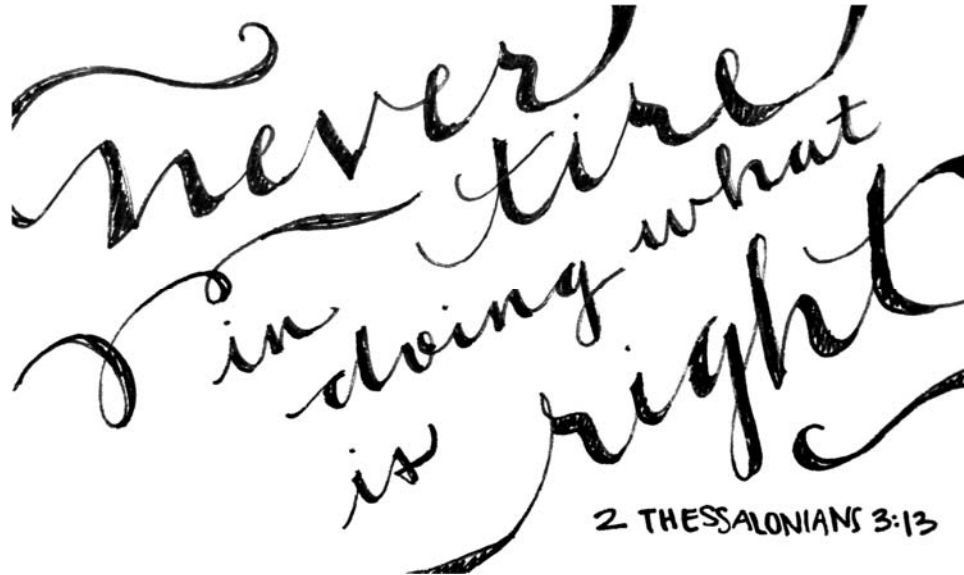 never
tire
in doing what
is right
2 THESSALONIANS 3:13